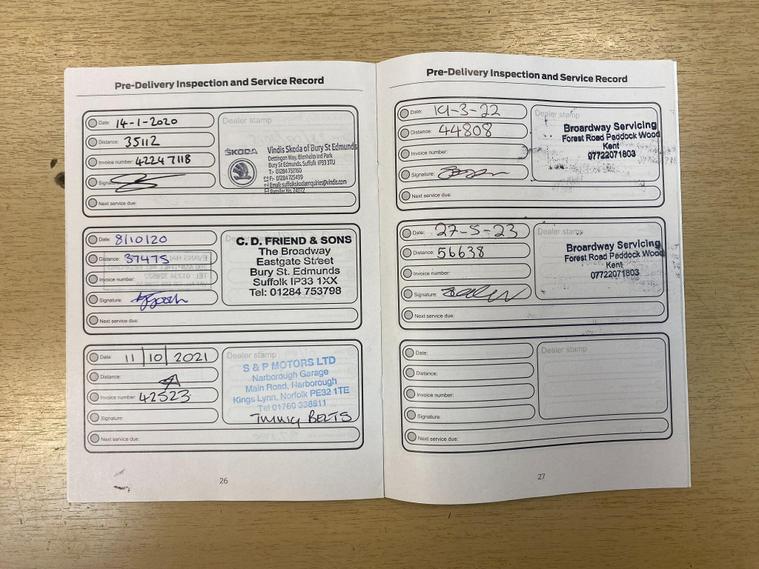 Pre-Delivery Inspection and Service Record
Date: 14-1-2020
Distance: 35112
Invoice number: 42247118
Signature:
Next service due:
Dealer stamp
ŠKODA
Vindis Skoda of Bury St Edmunds
Dettingen Way, Blenheim Park
Bury St Edmunds, Suffolk IP33 3TU
Date: 8/10/20
Distance: 37475
Invoice number:
Signature:
Next service due:
C. D. FRIEND & SONS
The Broadway
Eastgate Street
Bury St. Edmunds
Suffolk IP33 1XX
Tel: 01284 753798
Date: 11/10/2021
Distance:
Invoice number: 42523
Signature:
Next service due:
Dealer stamp
S & P MOTORS LTD
Narborough Garage
Main Road, Narborough
Kings Lynn, Norfolk PE32 1TE
Tel 01760 338811
Timing BELTS
26
Pre-Delivery Inspection and Service Record
Date: 19-3-22
Distance: 44808
Invoice number:
Signature:
Next service due:
Dealer stamp
Broardway Servicing
Forest Road Paddock Wood
Kent
07722071803
Date: 27-5-23
Distance: 56638
Invoice number:
Signature:
Next service due:
Dealer stamp
Broardway Servicing
Forest Road Paddock Wood
Kent
07722071803
Date:
Distance:
Invoice number:
Signature:
Next service due:
Dealer stamp
27